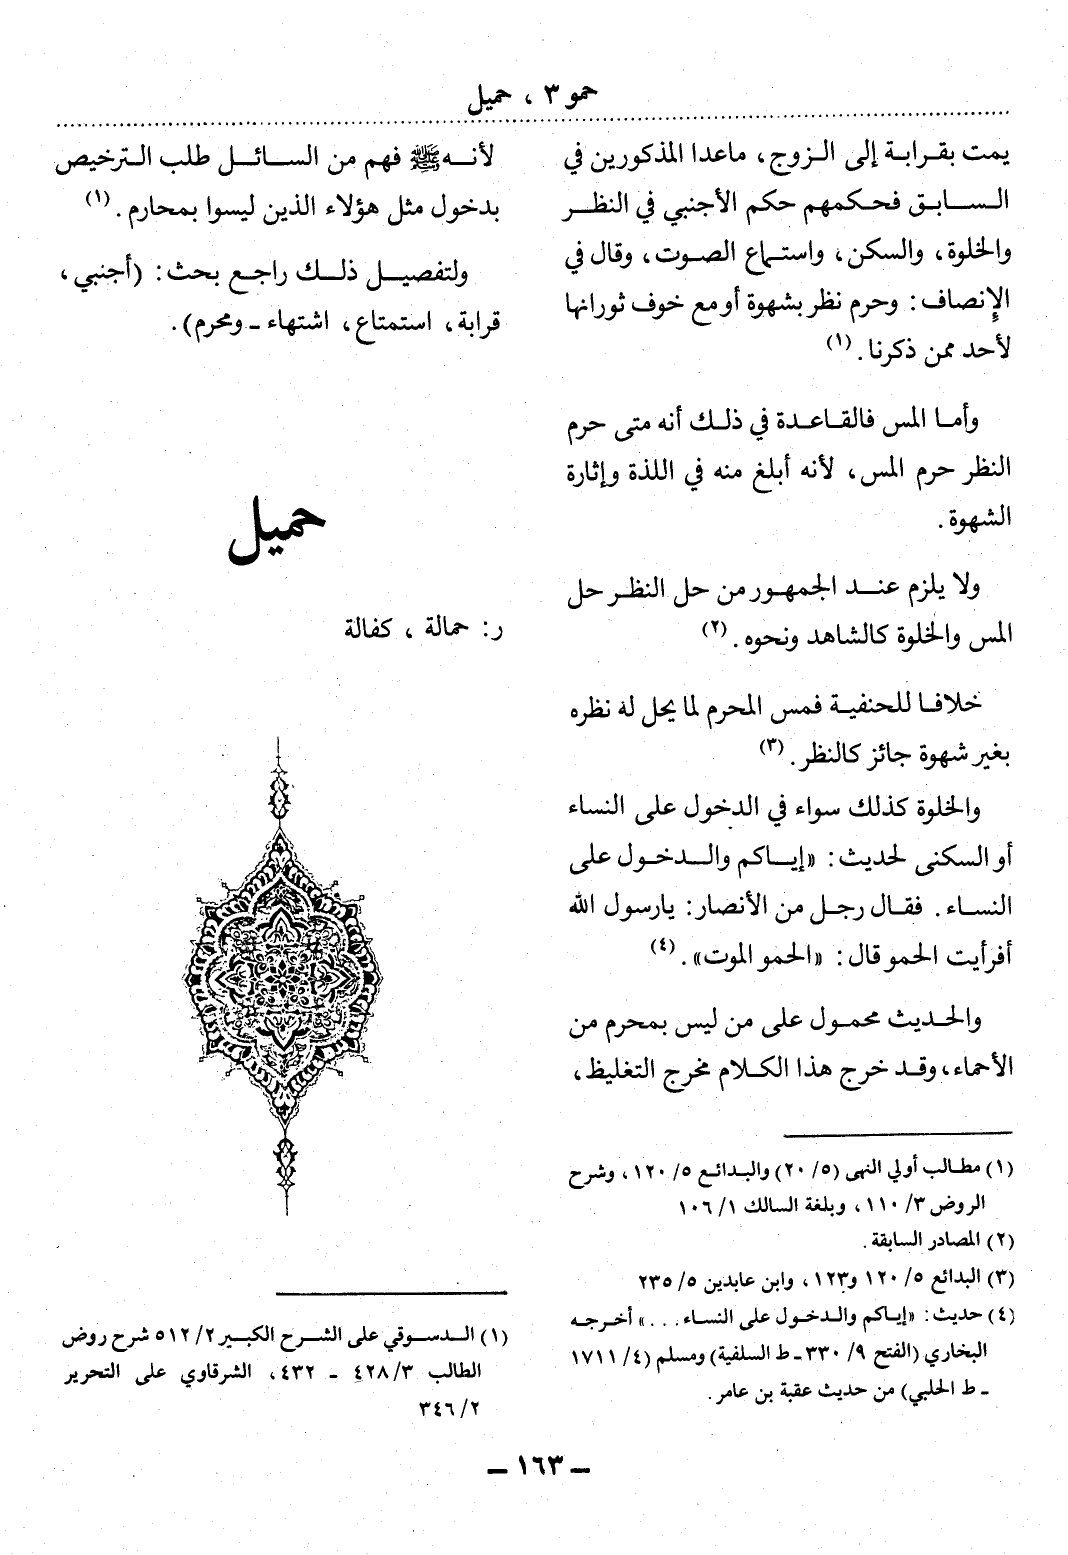 حمو ٣ ، حميل
يمت بقرابة إلى الزوج، ماعدا المذكورين في
السابق فحكمهم حكم الأجنبي في النظر
والخلوة، والسكن، واستماع الصوت، وقال في
الإنصاف: وحرم نظر بشهوة أو مع خوف ثورانها
لأحد ممن ذكرنا. (١)
وأما المس فالقاعدة في ذلك أنه متى حرم
النظر حرم المس، لأنه أبلغ منه في اللذة وإثارة
الشهوة.
ولا يلزم عند الجمهور من حل النظر حل
المس والخلوة كالشاهد ونحوه. (٢)
خلافا للحنفية فمس المحرم لما يحل له نظره
بغير شهوة جائز كالنظر. (٣)
والخلوة كذلك سواء في الدخول على النساء
أو السكنى لحديث: «إياكم والدخول على
النساء. فقال رجل من الأنصار: يارسول الله
أفرأيت الحمو قال: «الحمو الموت». (٤)
والحديث محمول على من ليس بمحرم من
الأحماء، وقد خرج هذا الكلام مخرج التغليظ،
(١) مطالب أولي النهى (٥/ ٢٠) والبدائع ٥/ ١٢٠، وشرح
الروض ٣/ ١١٠، وبلغة السالك ١/ ١٠٦
(٢) المصادر السابقة.
(٣) البدائع ٥/ ١٢٠ و١٢٣، وابن عابدين ٥/ ٢٣٥
(٤) حديث: «إياكم والدخول على النساء...» أخرجه
البخاري (الفتح ٩/ ٣٣٠ ـ ط السلفية) ومسلم (٤/ ١٧١١
ـ ط الحلبي) من حديث عقبة بن عامر.
لأنه ﷺ فهم من السائل طلب الترخيص
بدخول مثل هؤلاء الذين ليسوا بمحارم. (١)
ولتفصيل ذلك راجع بحث: (أجنبي،
قرابة، استمتاع، اشتهاء ـ ومحرم).
حميل
ر: حمالة ، كفالة
(١) الدسوقي على الشرح الكبير ٢/ ٥١٢ شرح روض
الطالب ٣/ ٤٢٨ ـ ٤٣٢، الشرقاوي على التحرير
٢/ ٣٤٦
ـ ١٦٣ ـ